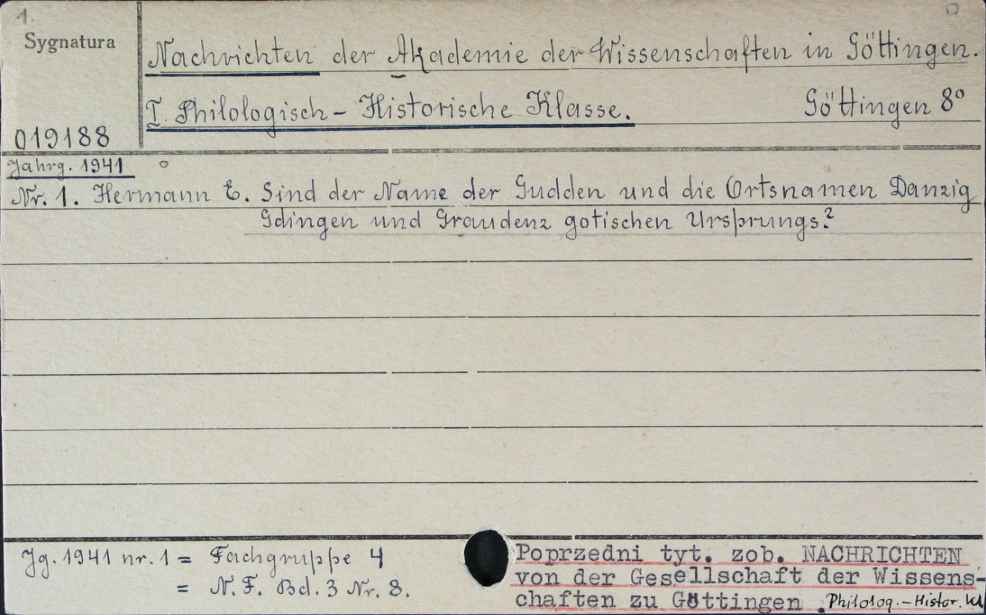 1.
Sygnatura
Nachrichten der Akademie der Wissenschaften in Göttingen.
I. Philologisch-Historische Klasse. Göttingen 8°
019188
Jahrg. 1941
Nr. 1. Hermann E. Sind der Name der Gudden und die Ortsnamen Danzig
Gdingen und Graudenz gotischen Ursprungs?
Jg. 1941 nr. 1 = Fachgruppe 4
= N. F. Bd. 3 Nr. 8.
Poprzedni tyt. zob. NACHRICHTEN
von der Gesellschaft der Wissens-
chaften zu Göttingen. Philolog.-Histor. Kl